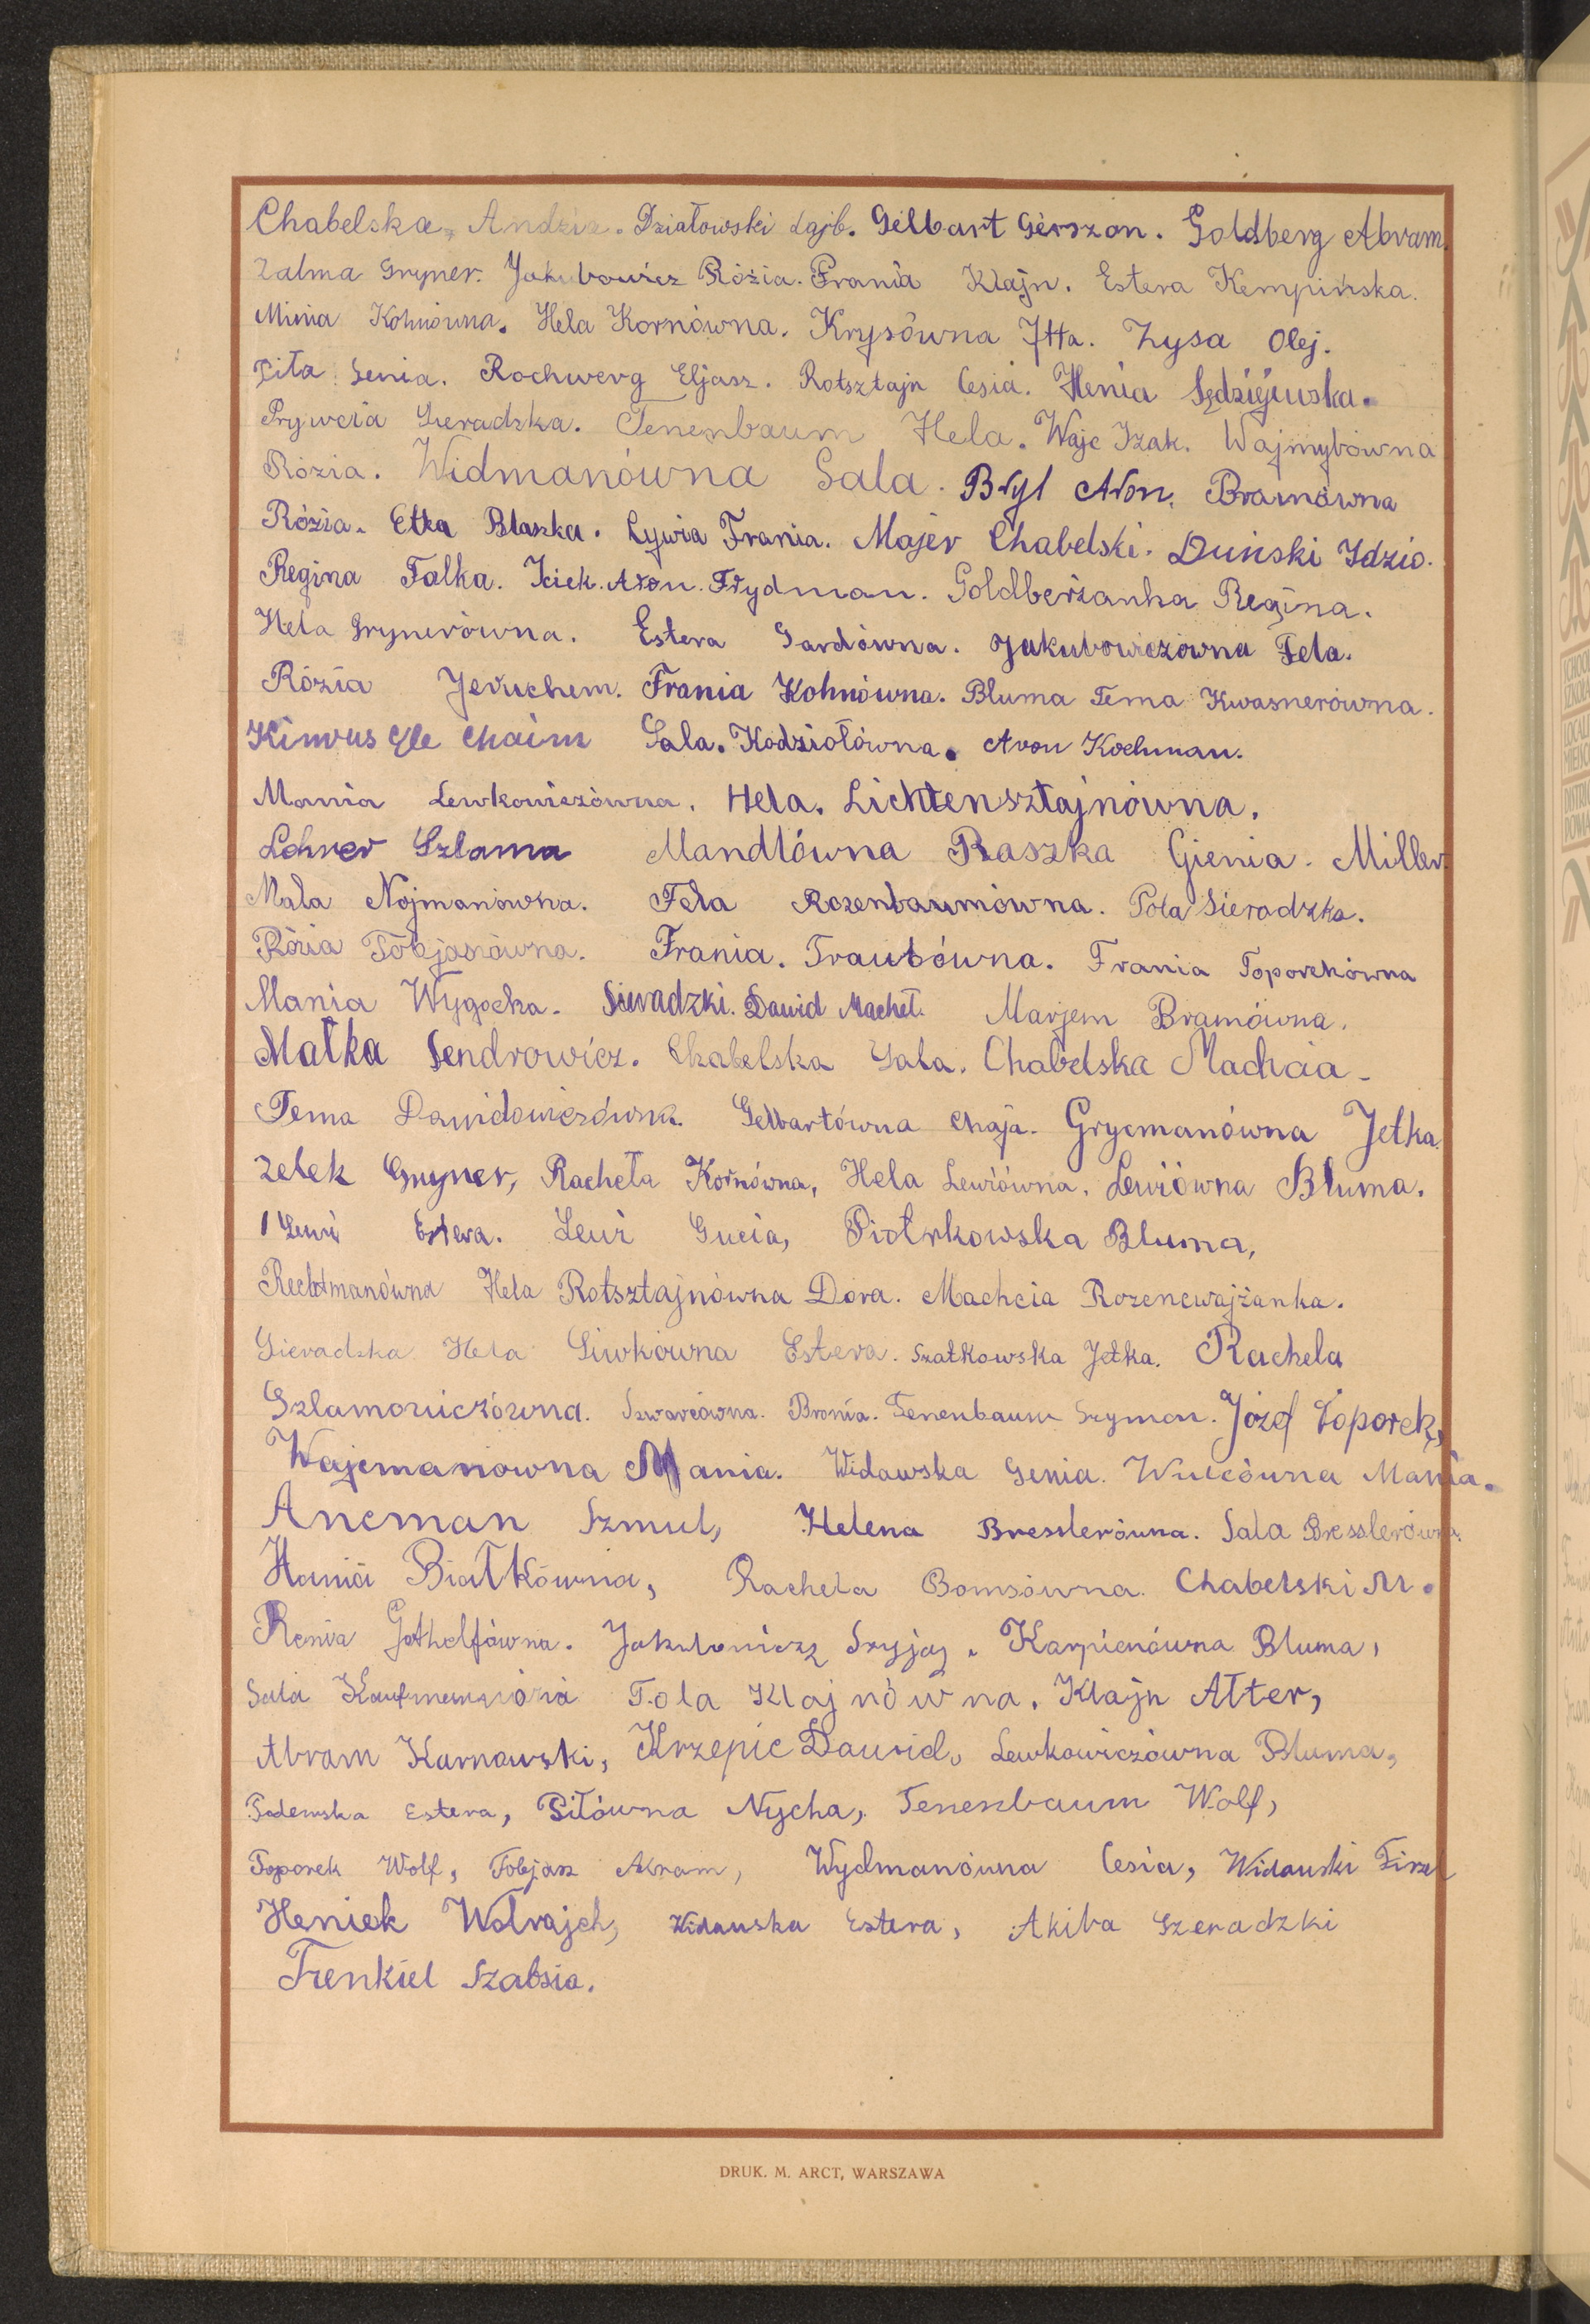 Chabelska, Andzia. Działowski Lajb. Gelbart Gerszon. Goldberg Abram.
Zalma Gryner. Jakubowicz Rózia. Frania Klajn. Estera Kempińska.
Minia Kohnówna. Hela Kornówna. Krysówna Jtta. Zysa Olej.
Piła Genia. Rochwerg Eljasz. Rotsztajn Cesia. Henia Sędziejewska.
Prywcia Sieradzka. Tenenbaum Hela. Wajc Izak. Wajnrybówna
Rózia. Widmanówna Sala. Bryl Aron. Bramówna
Rózia. Etka Blaszka. Cywia Frania. Majer Chabelski. Duński Idzio.
Regina Falka. Iciek. Aron. Frydman. Goldberżanka Regina.
Hela Grynerówna. Estera Gardówna. Jakubowiczówna Fela.
Rózia Jeruchem. Frania Kohnówna. Bluma Tema Kwasnerówna.
Chaim Sala. Kodziołówna. Aron Kochman.
Mania Lewkowiczówna. Hela. Lichtensztajnówna.
Lehrer Szlama Mandlówna Raszka Gienia. Miller.
Mala Nojmanówna. Fela Rozenbaumówna. Pola Sieradzka.
Rózia Tobjaszówna. Frania. Traubówna. Frania Toporkówna
Mania Wygocka. Sieradzki. Dawid Machel. Marjem Bramówna.
Małka Sendrowicz. Chabelska Sala. Chabelska Machcia.
Tema Dawidowiczówna. Gelbartówna Chaja. Grycmanówna Jetka.
Zelek Gryner, Rachela Kornówna, Hela Lewiówna, Lewiówna Bluma.
Lewi Estera. Lewi Gucia, Piotrkowska Bluma,
Rechtmanówna Hela Rotsztajnówna Dora. Machcia Rozencwajżanka.
Sieradzka Hela Siwkówna Estera. Szatkowska Jetka. Rachela
Szlamowiczówna. Szwarcówna. Bronia. Tenenbaum Szymon. Józef Toporek,
Wajcmanowna Mania. Widawska Genia. Wulcówna Mania.
Ancman Szmul, Helena Bresslerówna. Sala Bresslerówna.
Hania Białkówna, Rachela Bomsówna. Chabelski M.
Renia Gothelfówna. Jakubowicz Szyja. Karpienówna Bluma,
Sala Tola Klajnówna. Klajn Alter,
Abram Karnowski, Krzepic Dawid, Lewkowiczówna Bluma,
Podemska Estera, Piłówna Nycha, Tenenbaum Wolf,
Toporek Wolf, Tobjasz Abram, Wydmanówna Cesia, Widawski Fiszel
Heniek Wolrajch, Widawska Estera, Akiba Szeradzki
Frenkiel Szabsia.
DRUK. M. ARCT, WARSZAWA